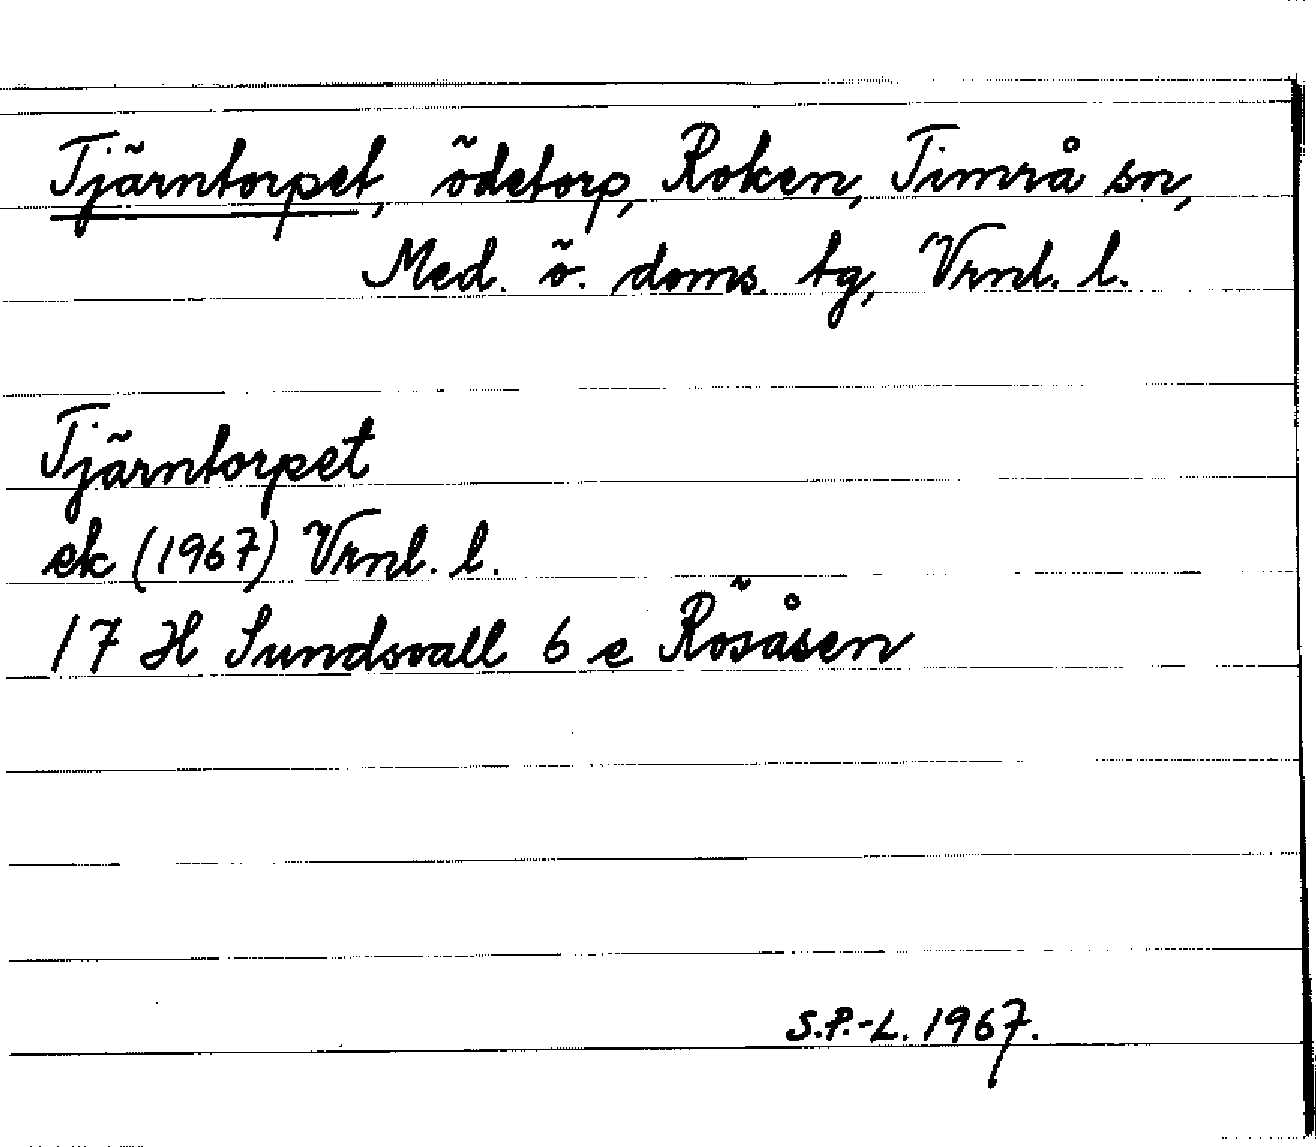 Tjärntorpet, ödetorp, Roken, Timrå sn,
Med. ö. doms. tg, Vrnl. l.
Tjärntorpet
ek (1967) Vrnl. l.
17 H Sundsvall 6 e Rösåsen
S.P.-L. 1967.